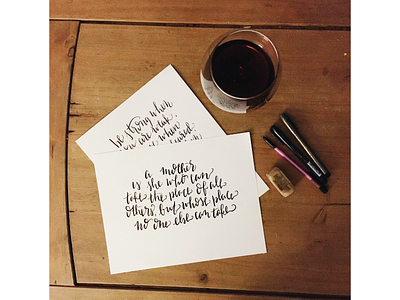 be strong when
you are weak,
when
a mother
is she who can
take the place of all
others, but whose place
no one else can take